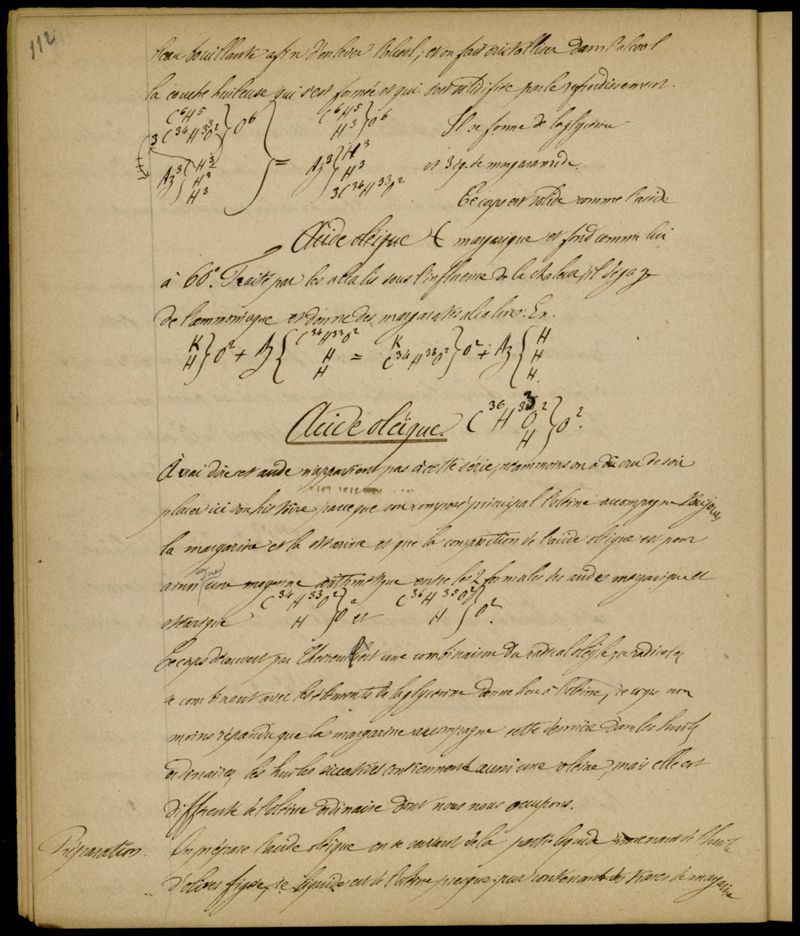 112
l'eau bouillante afin d'enlever l'alcool, et on fait cristalliser dans l'alcool
la couche huileuse qui s'est formée et qui s'est solidifiée par le refroidissement.
C⁶H⁵ } O⁶ C⁶H⁵ } O⁶
3C³⁴H³³O² H³ Il se forme de la glycérine
H³ = Az³ { H³ et 3 éq. de margaramide.
Az³ { H³ H³
H³ 3C³⁴H³³O²
Ce corps est solide comme l'acide
Acide oléique { margarique et fond comme lui
à 60°. Traité par les alcalis sous l'influence de la chaleur, il dégage
de l'ammoniaque et donne des margarates alcalins: Ex.
K } O² + Az { C³⁴H³³O² = K } O² + Az { H
H H C³⁴H³³O² H
H H.
Acide oléique. C³⁶H³³O² } O².
H
À vrai dire cet acide n'appartient pas à cette série, néanmoins on a dû cru devoir
placer ici son histoire parce que son composé principal l'oléine accompagne toujours
la margarine et la stéarine et que la composition de l'acide oléique est pour
ainsi dire une moyenne arithmétique entre les 2 formules des acides margarique et
stéarique C³⁴H³³O² } O² et C³⁶H³⁵O² } O².
H H
Ce corps découvert par Chevreul est une combinaison du radical oléyle, ce radical
se combinant avec les éléments de la glycérine donne lieu à l'oléine, ce corps non
moins répandu que la margarine accompagne cette dernière dans les huiles
ordinaires, les huiles siccatives contiennent aussi une oléine, mais elle est
différente de l'oléine ordinaire dont nous nous occupons.
Préparation. On prépare l'acide oléique en se servant de la partie liquide provenant de l'huile
d'olives figée, ce liquide est de l'oléine presque pur contenant des traces de margarine